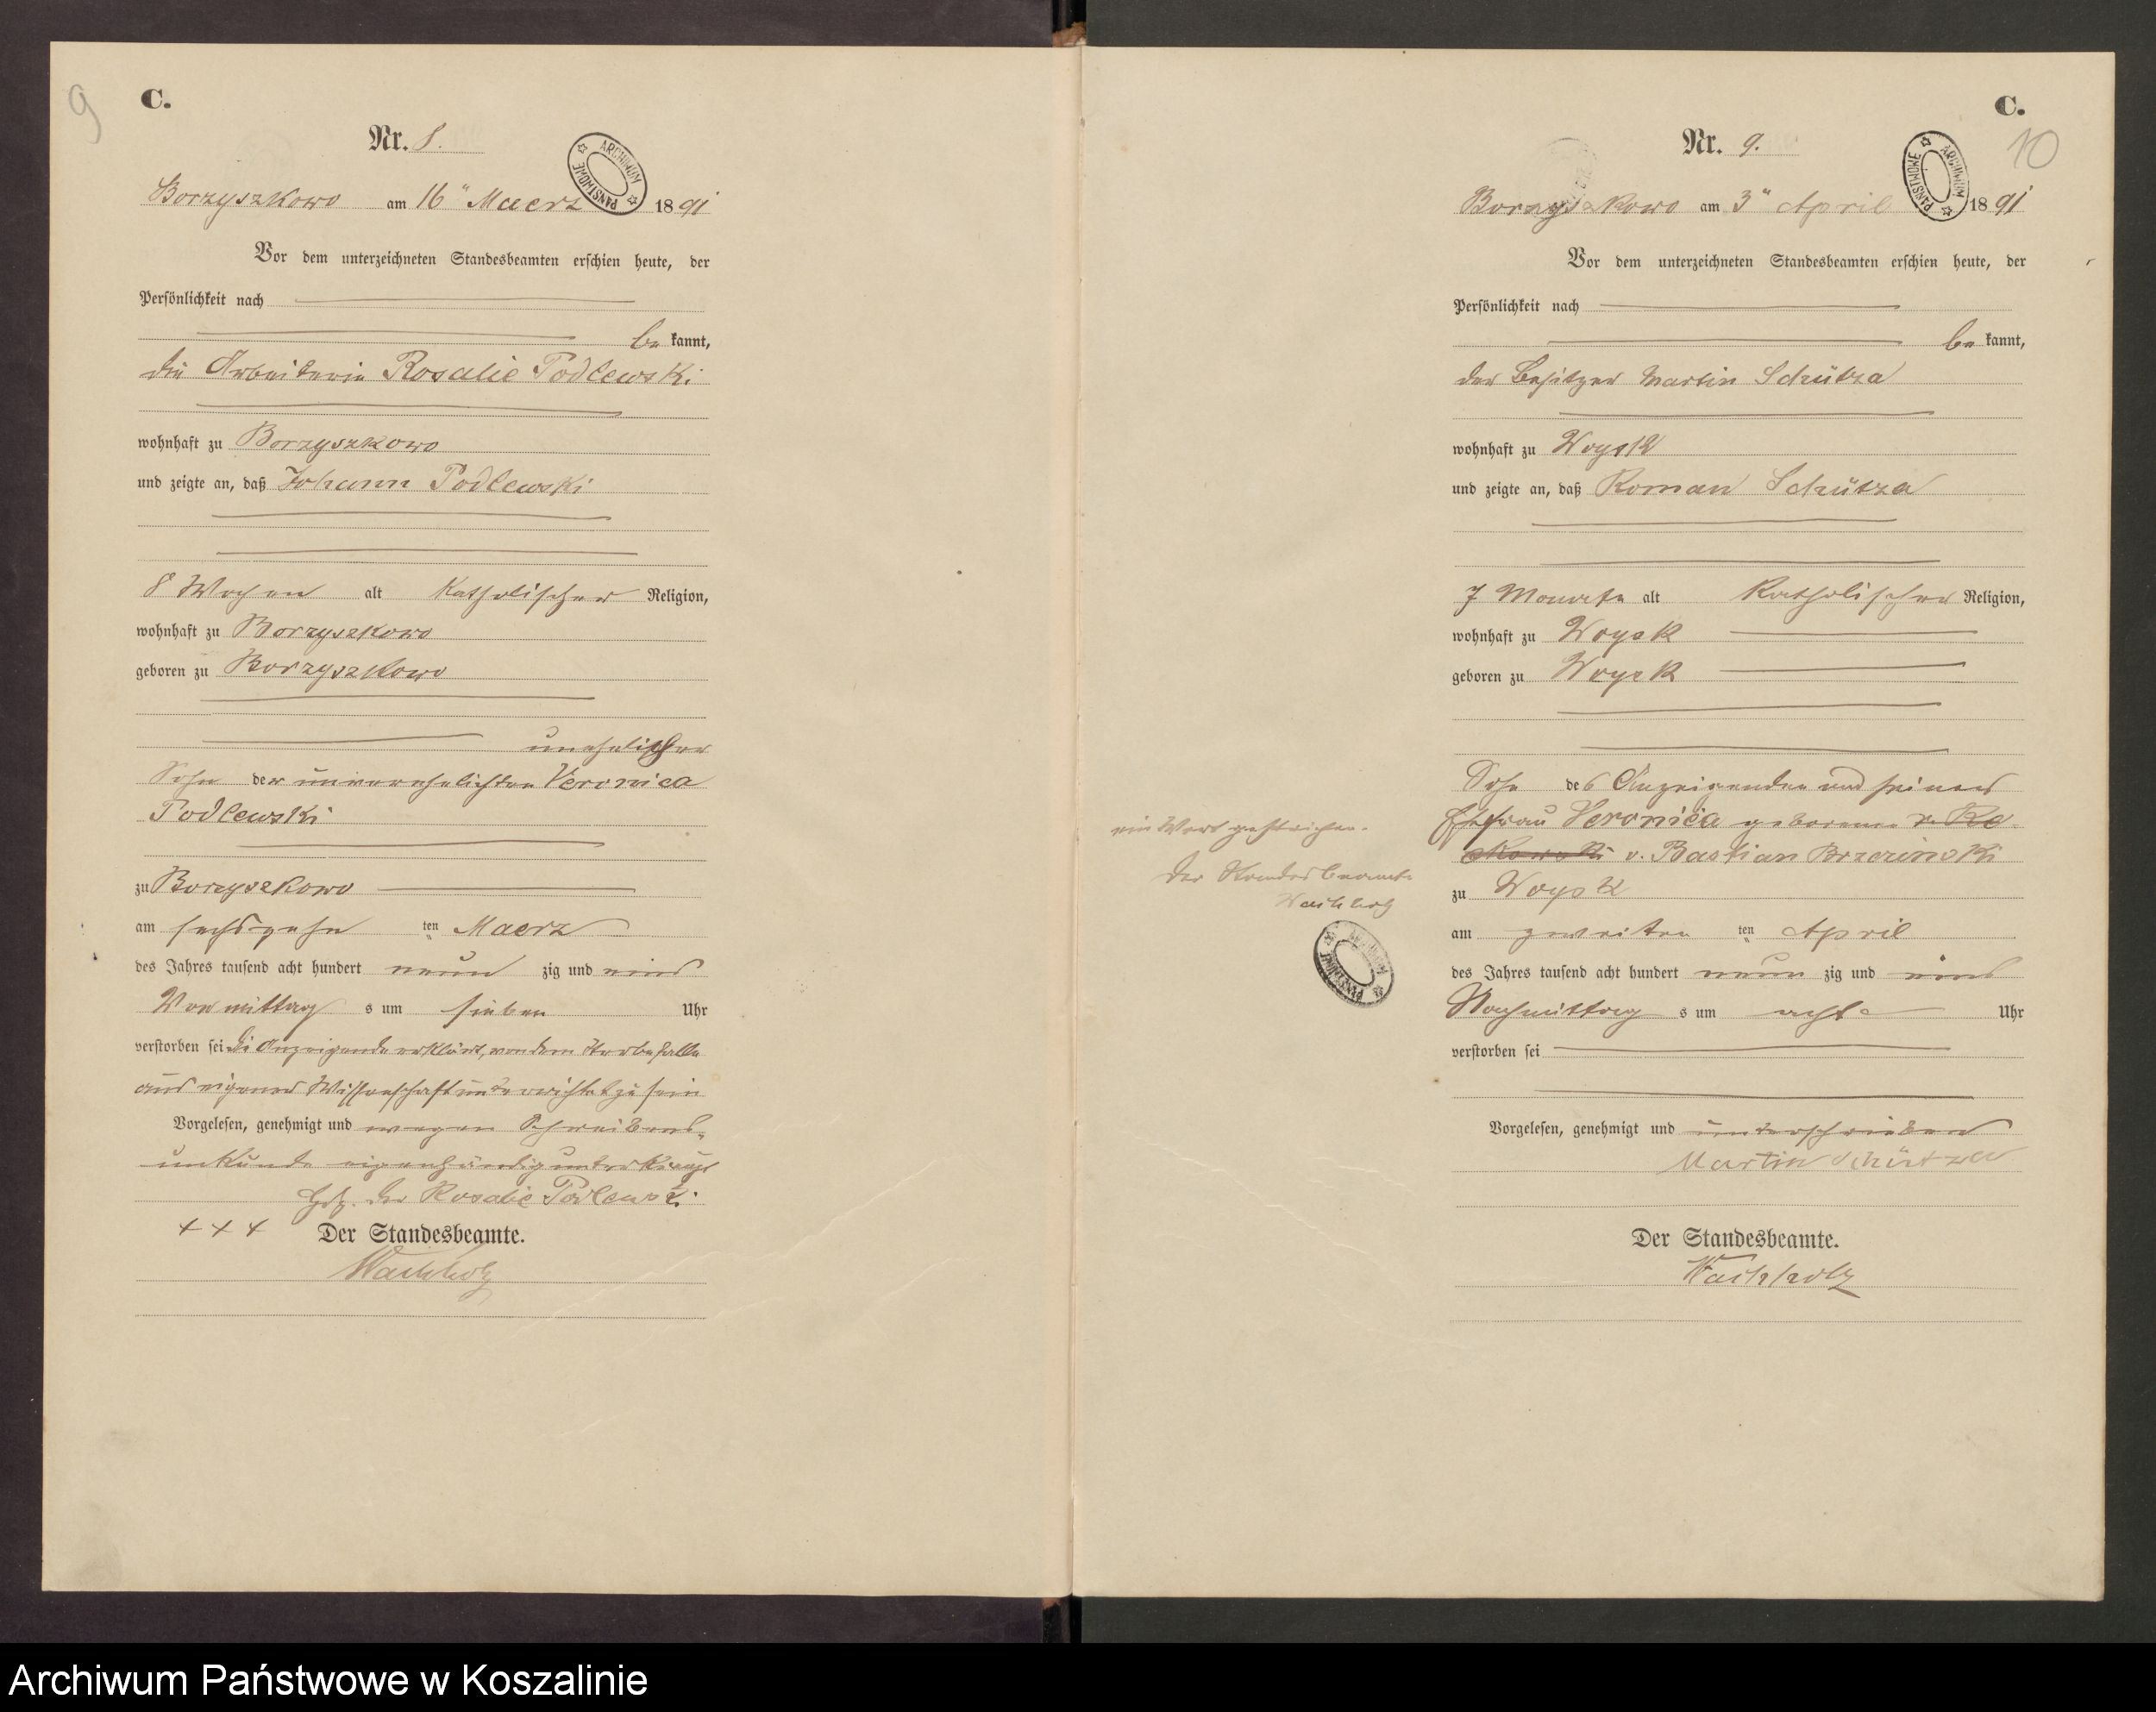 9
C.
Nr. 8.
ARCHIWUM PAŃSTWOWE
Borzyszkowo am 16ten Maerz 1891
Vor dem unterzeichneten Standesbeamten erschien heute, der
Persönlichkeit nach
be kannt,
die Arbeiterin Rosalie Podlewski
wohnhaft zu Borzyszkowo
und zeigte an, daß Johann Podlewski
8 Wochen alt katholischer Religion,
wohnhaft zu Borzyszkowo
geboren zu Borzyszkowo
unehelicher
Sohn der unverehelichten Veronica
Podlewski
zu Borzyszkowo
am sechszehn ten Maerz
des Jahres tausend acht hundert neun zig und eins
Vormittag s um sieben Uhr
verstorben sei die Anzeigende erklärt, von dem Sterbefalle
aus eigener Wissenschaft unterrichtet zu sein
Vorgelesen, genehmigt und wegen Schreibens-
unkunde eigenhändig unterkreuzt
Hdz. der Rosalie Podlewski
+++ Der Standesbeamte.
Wachholz
C.
10
Nr. 9.
ARCHIWUM PAŃSTWOWE
Borzyszkowo am 3ten April 1891
Vor dem unterzeichneten Standesbeamten erschien heute, der
Persönlichkeit nach
be kannt,
der Besitzer Martin Schütza
wohnhaft zu Woysk
und zeigte an, daß Roman Schütza
7 Monate alt katholischer Religion,
wohnhaft zu Woysk
geboren zu Woysk
Sohn des Anzeigenden und seiner
Ehefrau Veronica geborene v. Re-
ckowski v. Bastian Brzezinski
zu Woysk
am zweiten ten April
des Jahres tausend acht hundert neun zig und eins
Nachmittag s um acht Uhr
verstorben sei
Vorgelesen, genehmigt und unterschrieben
Martin Schütza
Der Standesbeamte.
Wachholz
ein Wort gestrichen.
Der Standesbeamte
Wachholz
ARCHIWUM PAŃSTWOWE
Archiwum Państwowe w Koszalinie